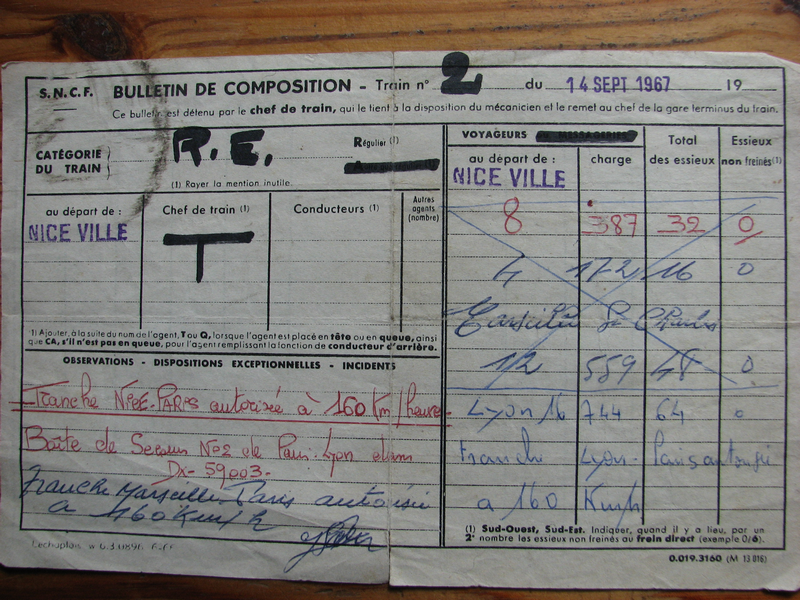 S.N.C.F. BULLETIN DE COMPOSITION - Train n° 2 du 14 SEPT 1967 19
Ce bulletin est détenu par le chef de train, qui le tient à la disposition du mécanicien et le remet au chef de la gare terminus du train.
CATÉGORIE DU TRAIN
R.E.
Régulier (1)
(1) Rayer la mention inutile.
au départ de :
NICE VILLE
Chef de train (1)
T
Conducteurs (1)
Autres agents (nombre)
1) Ajouter, à la suite du nom de l'agent, T ou Q, lorsque l'agent est placé en tête ou en queue, ainsi
que CA, s'il n'est pas en queue, pour l'agent remplissant la fonction de conducteur d'arrière.
OBSERVATIONS - DISPOSITIONS EXCEPTIONNELLES - INCIDENTS
Tranche NICE-PARIS autorisée à 160 Km/heure
Boîte de Secours N°2 de Paris-Lyon dans
DX-59003-
Tranche Marseille Paris autorisée
a 160 Km/h
VOYAGEURS MESSAGERIES
au départ de : charge Total des essieux Essieux non freinés(1)
NICE VILLE
8 387 32 0
4 172 16 0
Marseille St Charles
12 559 48 0
Lyon 16 744 64 0
Tranche Lyon-Paris autorisée
a 160 Km/h
(1) Sud-Ouest, Sud-Est. Indiquer, quand il y a lieu, par un
2e nombre les essieux non freinés au frein direct (exemple 0/6).
0.019.3160 (M 13 016)